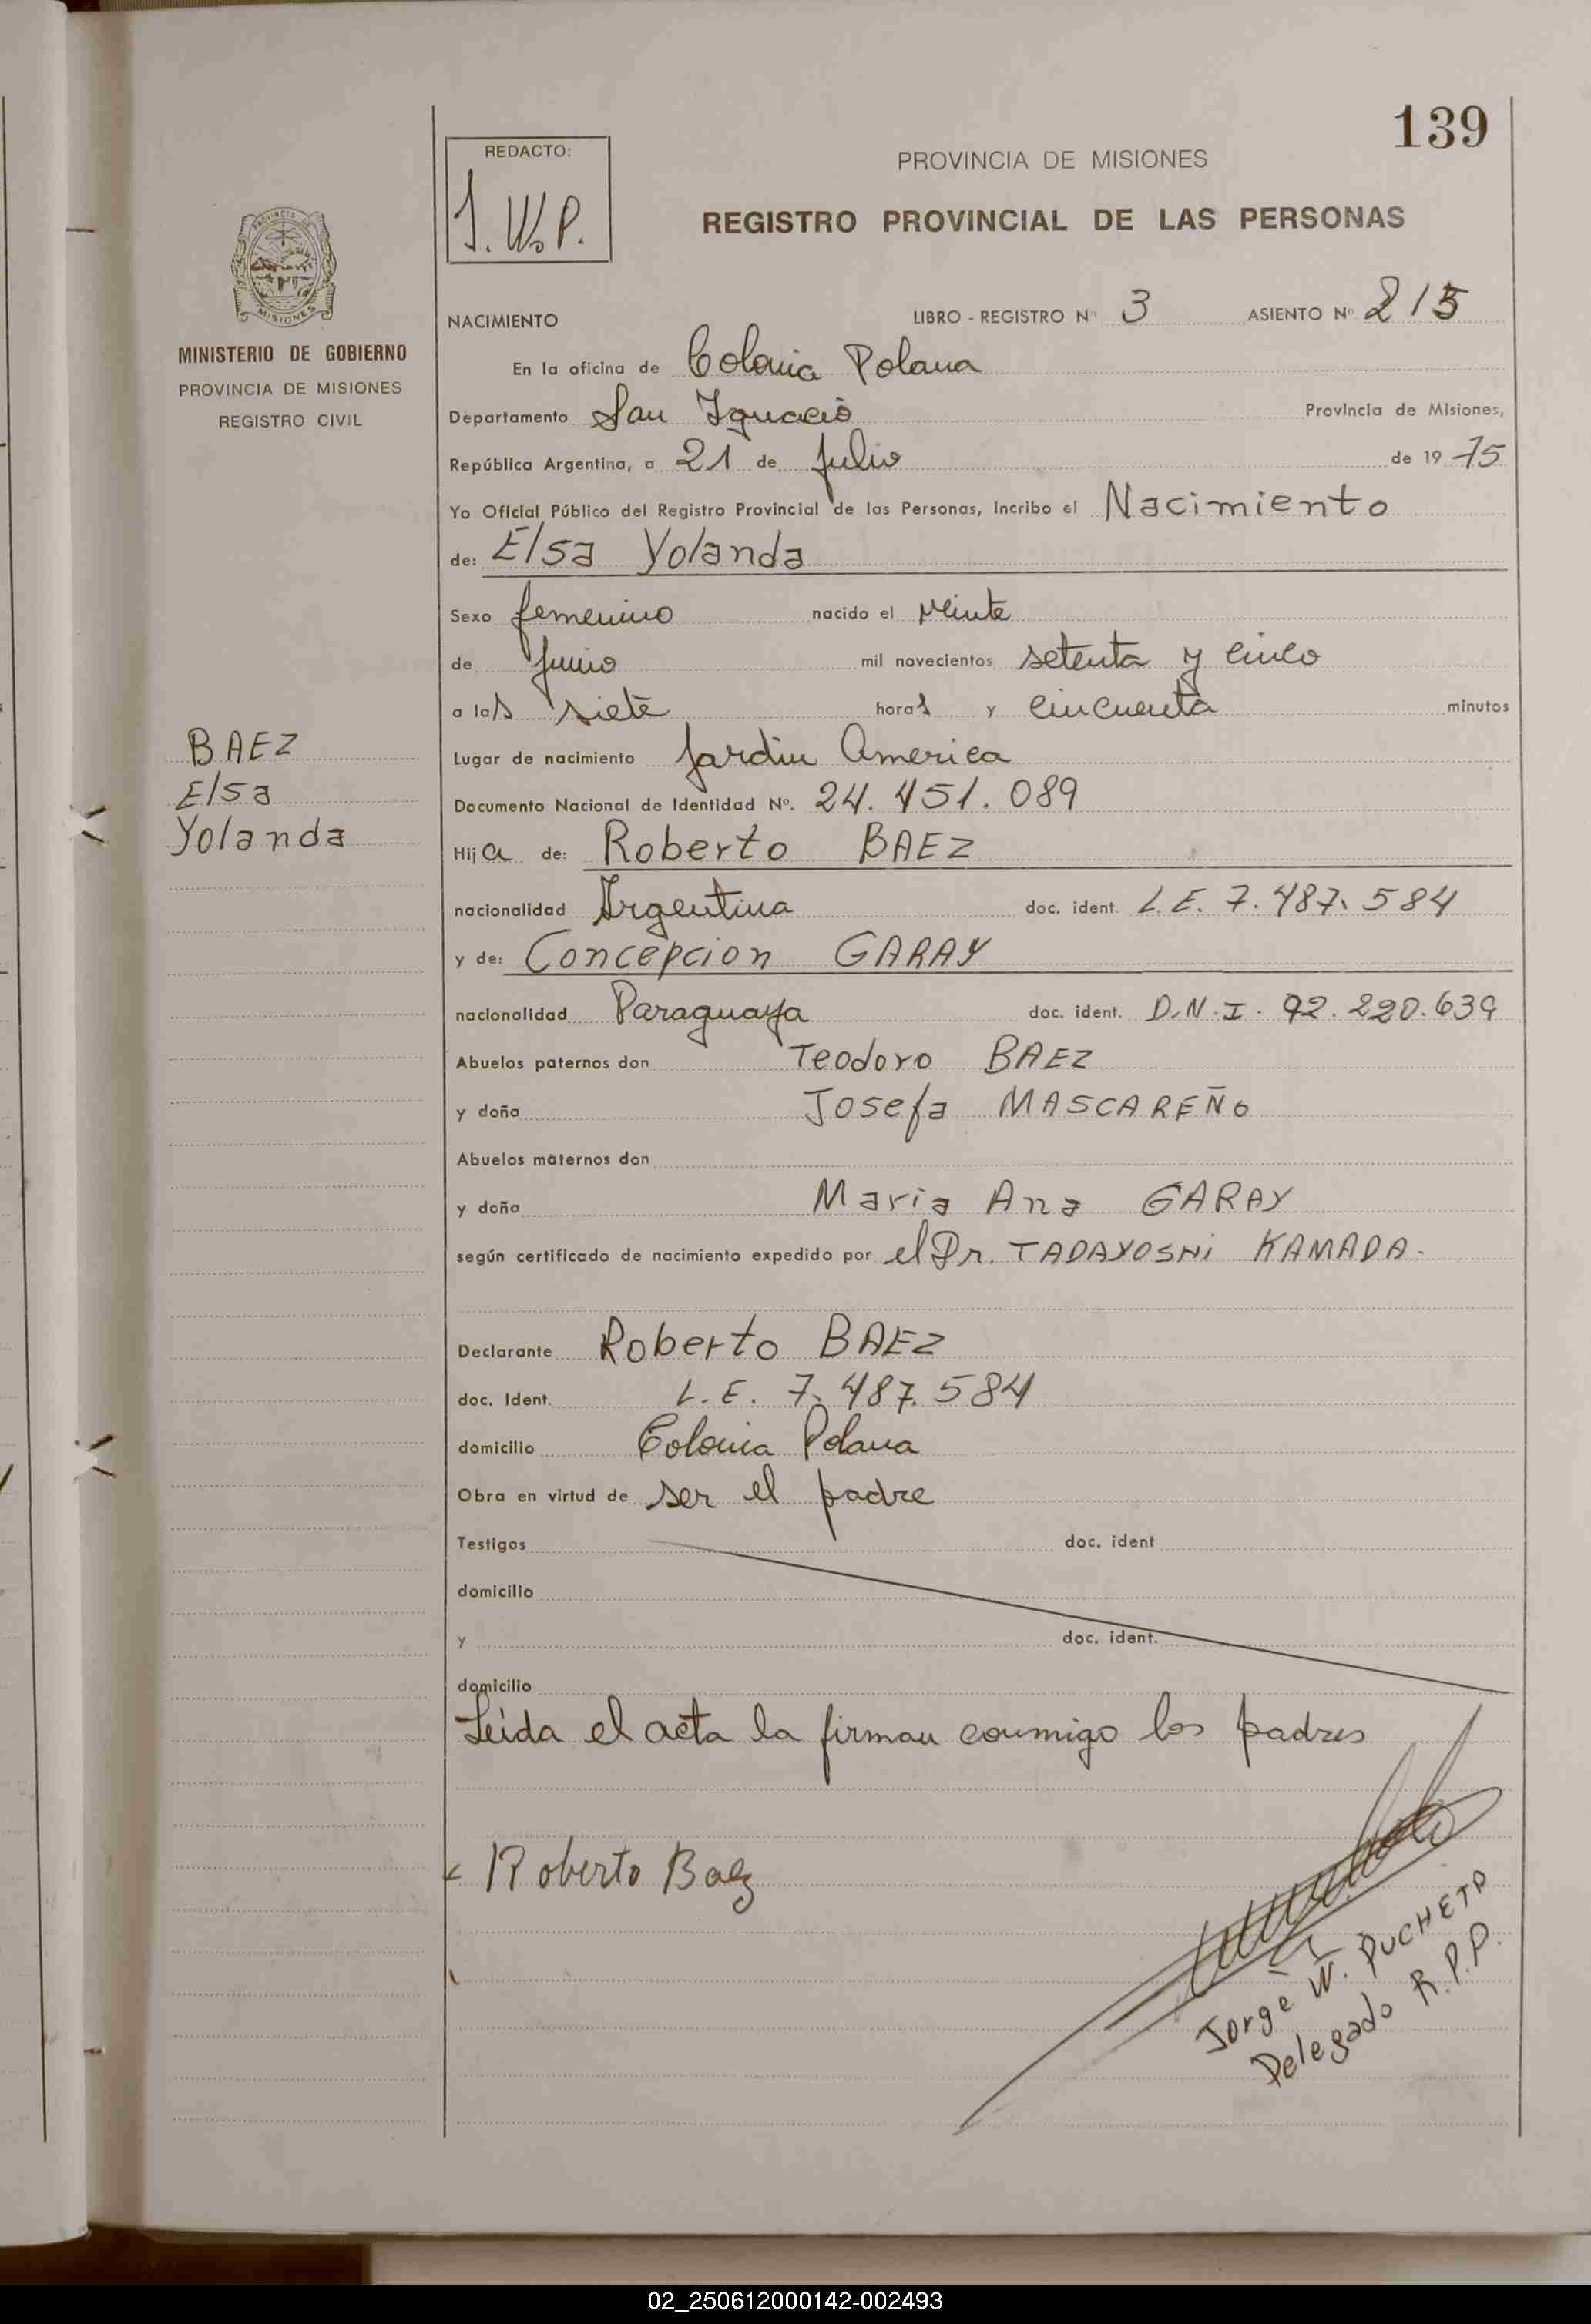 139
REDACTO:
J.W.P.
PROVINCIA DE MISIONES
REGISTRO PROVINCIAL DE LAS PERSONAS
PROVINCIA DE
MISIONES
MINISTERIO DE GOBIERNO
PROVINCIA DE MISIONES
REGISTRO CIVIL
BAEZ
Elsa
Yolanda
NACIMIENTO LIBRO - REGISTRO Nº 3 ASIENTO Nº 215
En la oficina de Colonia Polana
Departamento San Ignacio Provincia de Misiones,
República Argentina, a 21 de Julio de 1975
Yo Oficial Público del Registro Provincial de las Personas, incribo el Nacimiento
de: Elsa Yolanda
Sexo femenino nacido el veinte
de Junio mil novecientos setenta y cinco
a las siete horas y cincuenta minutos
Lugar de nacimiento Jardin America
Documento Nacional de Identidad Nº. 24.451.089
Hija de: Roberto BAEZ
nacionalidad Argentina doc. ident. L.E. 7.487.584
y de: Concepcion GARAY
nacionalidad Paraguaya doc. ident. D.N.I. 92.220.639
Abuelos paternos don Teodoro BAEZ
y doña Josefa MASCAREÑO
Abuelos maternos don
y doña Maria Ana GARAY
según certificado de nacimiento expedido por el Dr. TADAYOSHi KAMADA.
Declarante Roberto BAEZ
doc. Ident. L.E. 7.487.584
domicilio Colonia Polana
Obra en virtud de ser el padre
Testigos doc. ident
domicilio
y doc. ident.
domicilio
Leida el acta la firman conmigo los padres
Roberto Baez
Jorge W. PUCHETA
Delegado R.P.P.
02_250612000142-002493